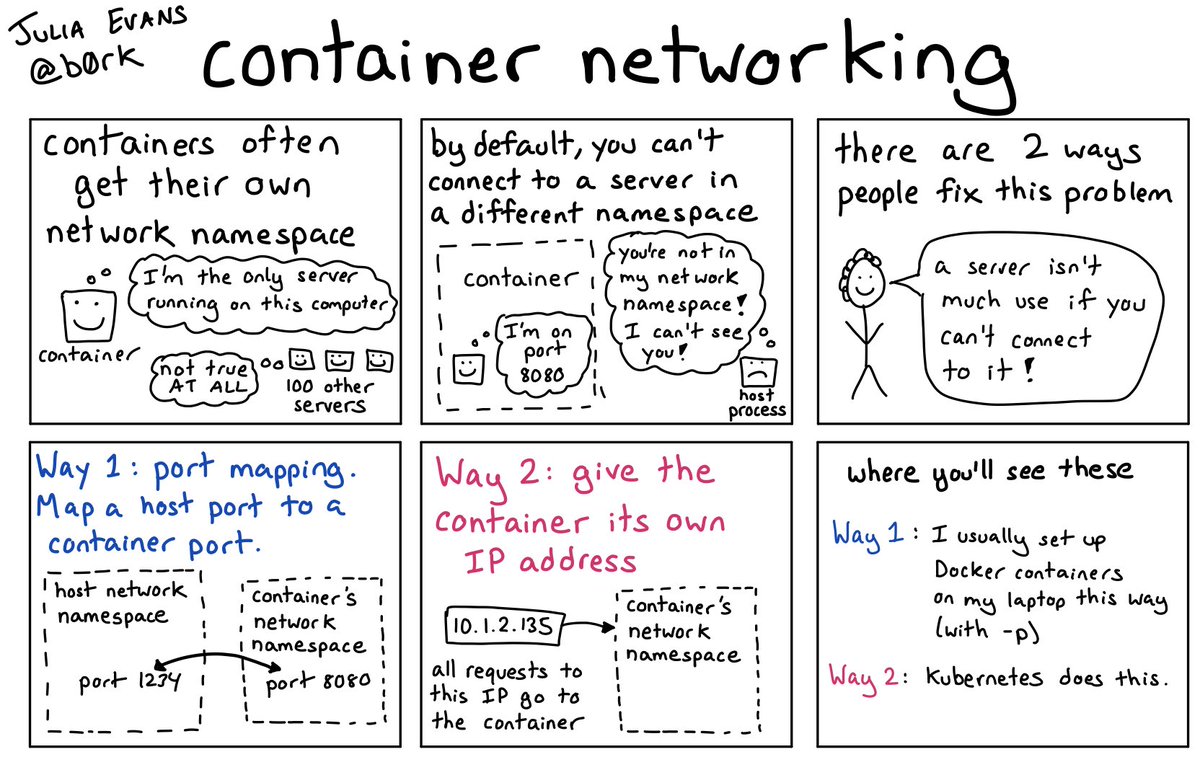 JULIA EVANS
@b0rk
container networking
containers often
get their own
network namespace
I'm the only server
running on this computer
container
not true
AT ALL
100 other
servers
by default, you can't
connect to a server in
a different namespace
container
I'm on
port
8080
you're not in
my network
namespace!
I can't see
you!
host
process
there are 2 ways
people fix this problem
a server isn't
much use if you
can't connect
to it!
Way 1: port mapping.
Map a host port to a
container port.
host network
namespace
port 1234
container's
network
namespace
port 8080
Way 2: give the
container its own
IP address
10.1.2.135
container's
network
namespace
all requests to
this IP go to
the container
where you'll see these
Way 1: I usually set up
Docker containers
on my laptop this way
(with -p)
Way 2: Kubernetes does this.